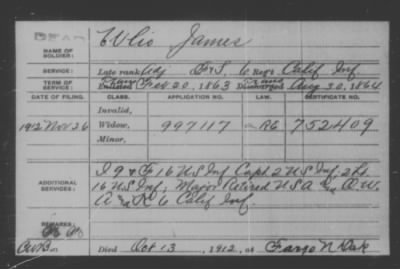 DEAD
NAME OF SOLDIER: James
SERVICE: Late rank Adj F&S, 6 Reg't Calif Inf
TERM OF SERVICE: Enlisted Feb 20, 1863 Discharged Aug 30, 1864
DATE OF FILING. CLASS. APPLICATION NO. LAW. CERTIFICATE NO.
Invalid,
1912 Nov 26 Widow, 997117 752409
Minor,
I 9 & F 16 US Inf Capt 2 US Inf; 2 Lt.
ADDITIONAL SERVICES: 16 US Inf, Major Retired USA
A & K 6 Calif Inf.
REMARKS:
Died Oct 13, 1912, at Fargo N Dak